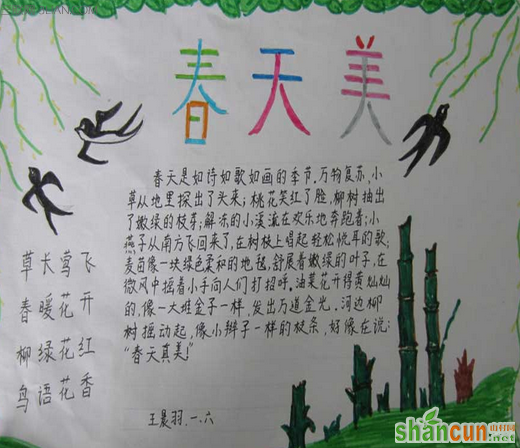 春天美
春天是如诗如歌如画的季节,万物复苏,小
草从地里探出了头来;桃花笑红了脸,柳树抽出
了嫩绿的枝芽;解冻的小溪流在欢乐地奔跑着;小
燕子从南方飞回来了,在树枝上唱起轻松悦耳的歌;
麦苗像一块绿色柔和的地毯,舒展着嫩绿的叶子,在
微风中摇着小手向人们打招呼,油菜花开得黄灿灿
的,像一大堆金子一样,发出万道金光,河边柳
树摇动起,像小辫子一样的枝条,好像在说:
“春天真美!”
王晨羽.一.六
草长莺飞
春暖花开
柳绿花红
鸟语花香
shancun